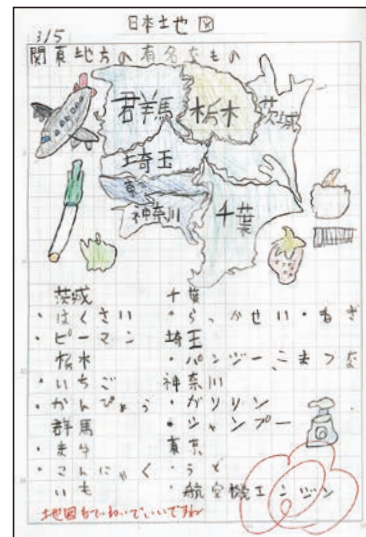 3/5
日本土地図
関東地方の有名なもの
群馬
栃木
茨城
埼玉
東京
神奈川
千葉
茨城
・はくさい
・ピーマン
栃木
・いちご
・かんぴょう
群馬
・まゆ
・こんにゃく
いも
千葉
・らっかせい・ねぎ
埼玉
・パンジー、こまつな
神奈川
・ガソリン
・シャンプー
東京
・うど
・航空機エンジン
地図もていねいでいいですね